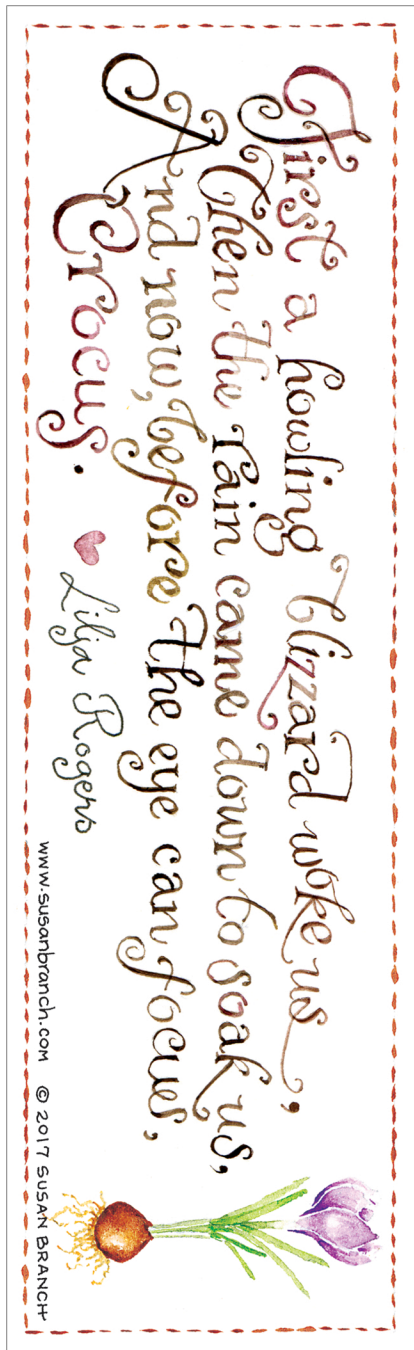 First a howling blizzard woke us,
Then the rain came down to soak us,
And now, before the eye can focus,
Crocus.
Lilja Rogers
www.susanbranch.com © 2017 SUSAN BRANCH